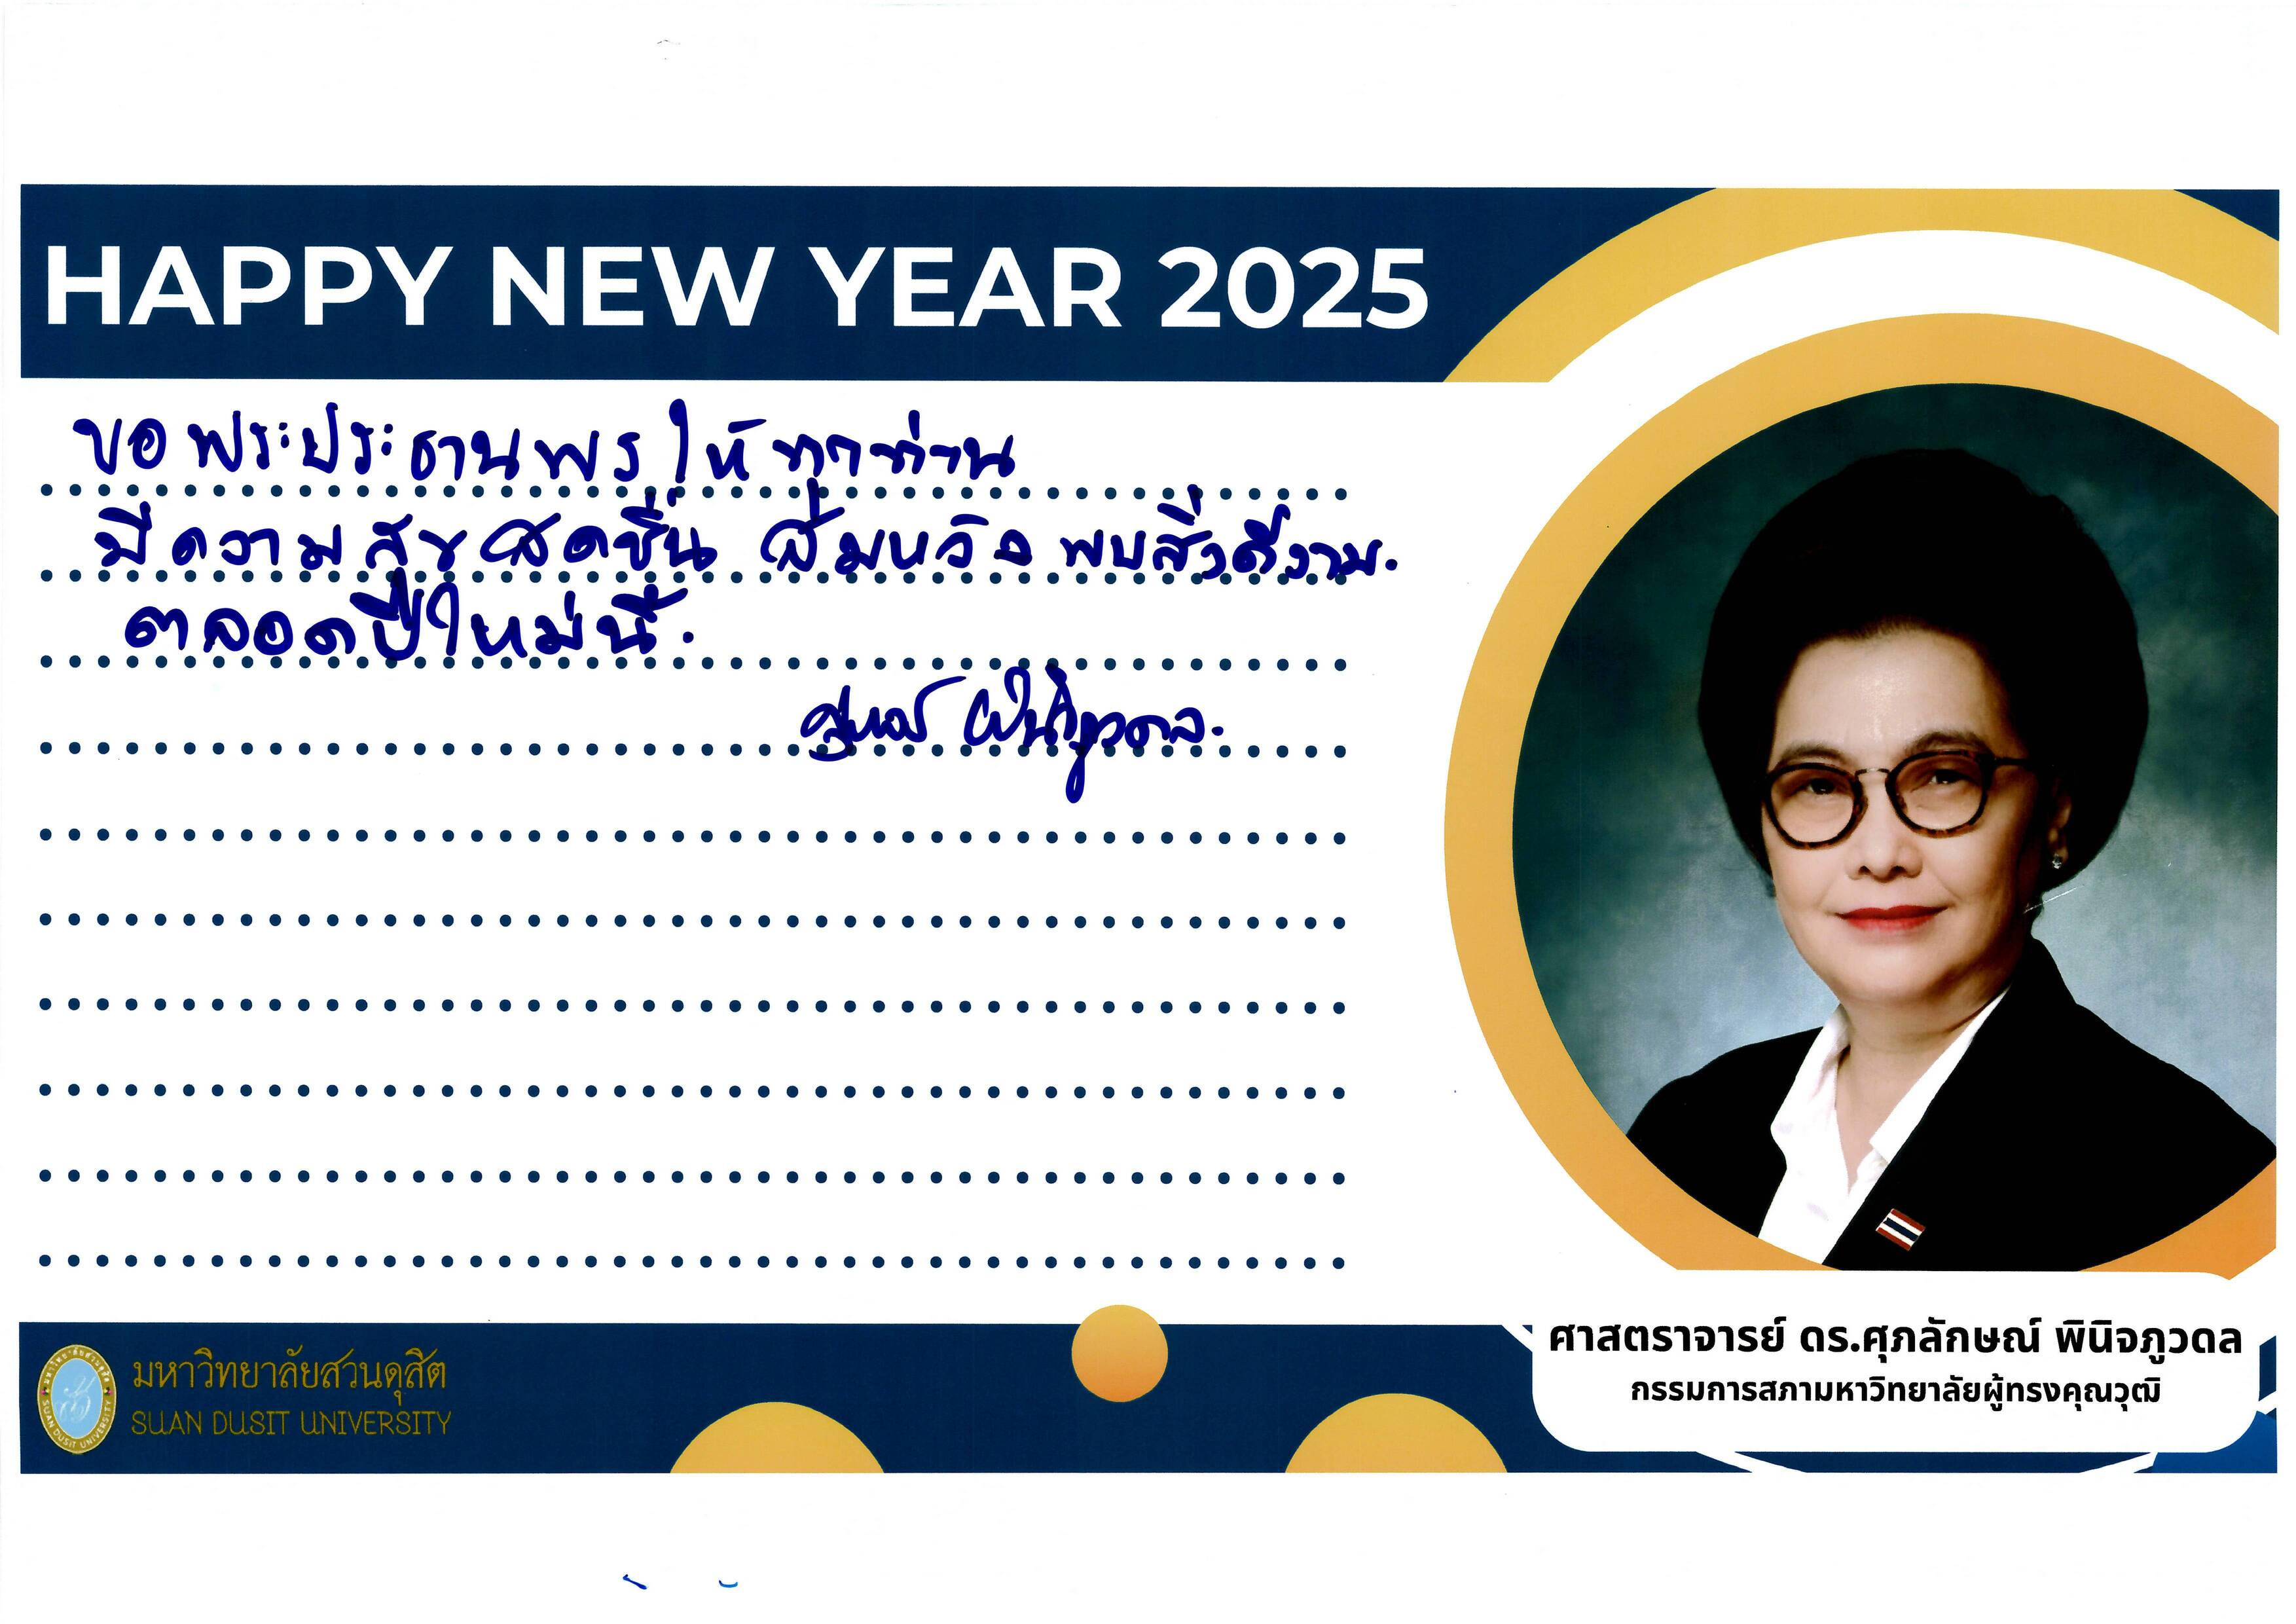 HAPPY NEW YEAR 2025
ขอพระประธานพรให้ทุกท่าน
มีความสุข สดชื่น สมหวัง พบสิ่งดีงาม.
ตลอดปีใหม่นี้.
พินิจภูวดล.
มหาวิทยาลัยสวนดุสิต
SUAN DUSIT UNIVERSITY
ศาสตราจารย์ ดร.ศุภลักษณ์ พินิจภูวดล
กรรมการสภามหาวิทยาลัยผู้ทรงคุณวุฒิ